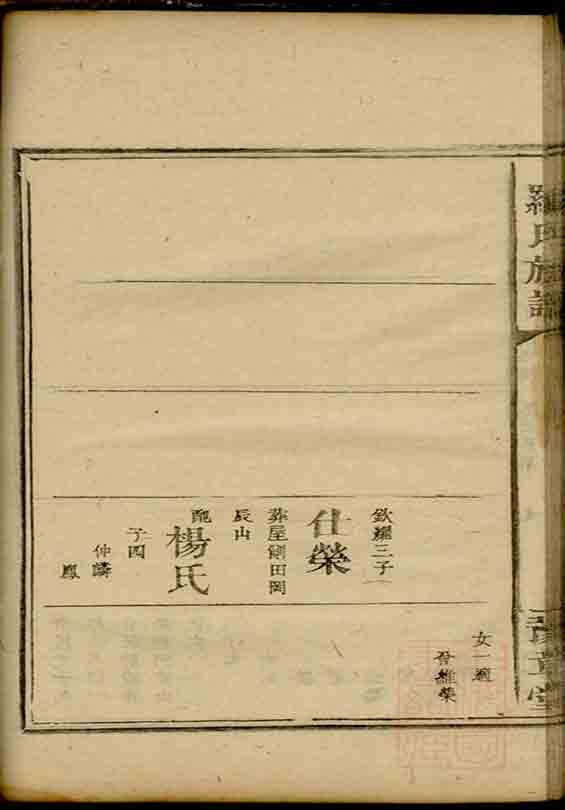 羅氏族譜
豫章堂
女一適
晉維榮
欽耀三子
仕榮
葬屋側田岡
辰山
配
楊氏
子四
仲麟
鳳